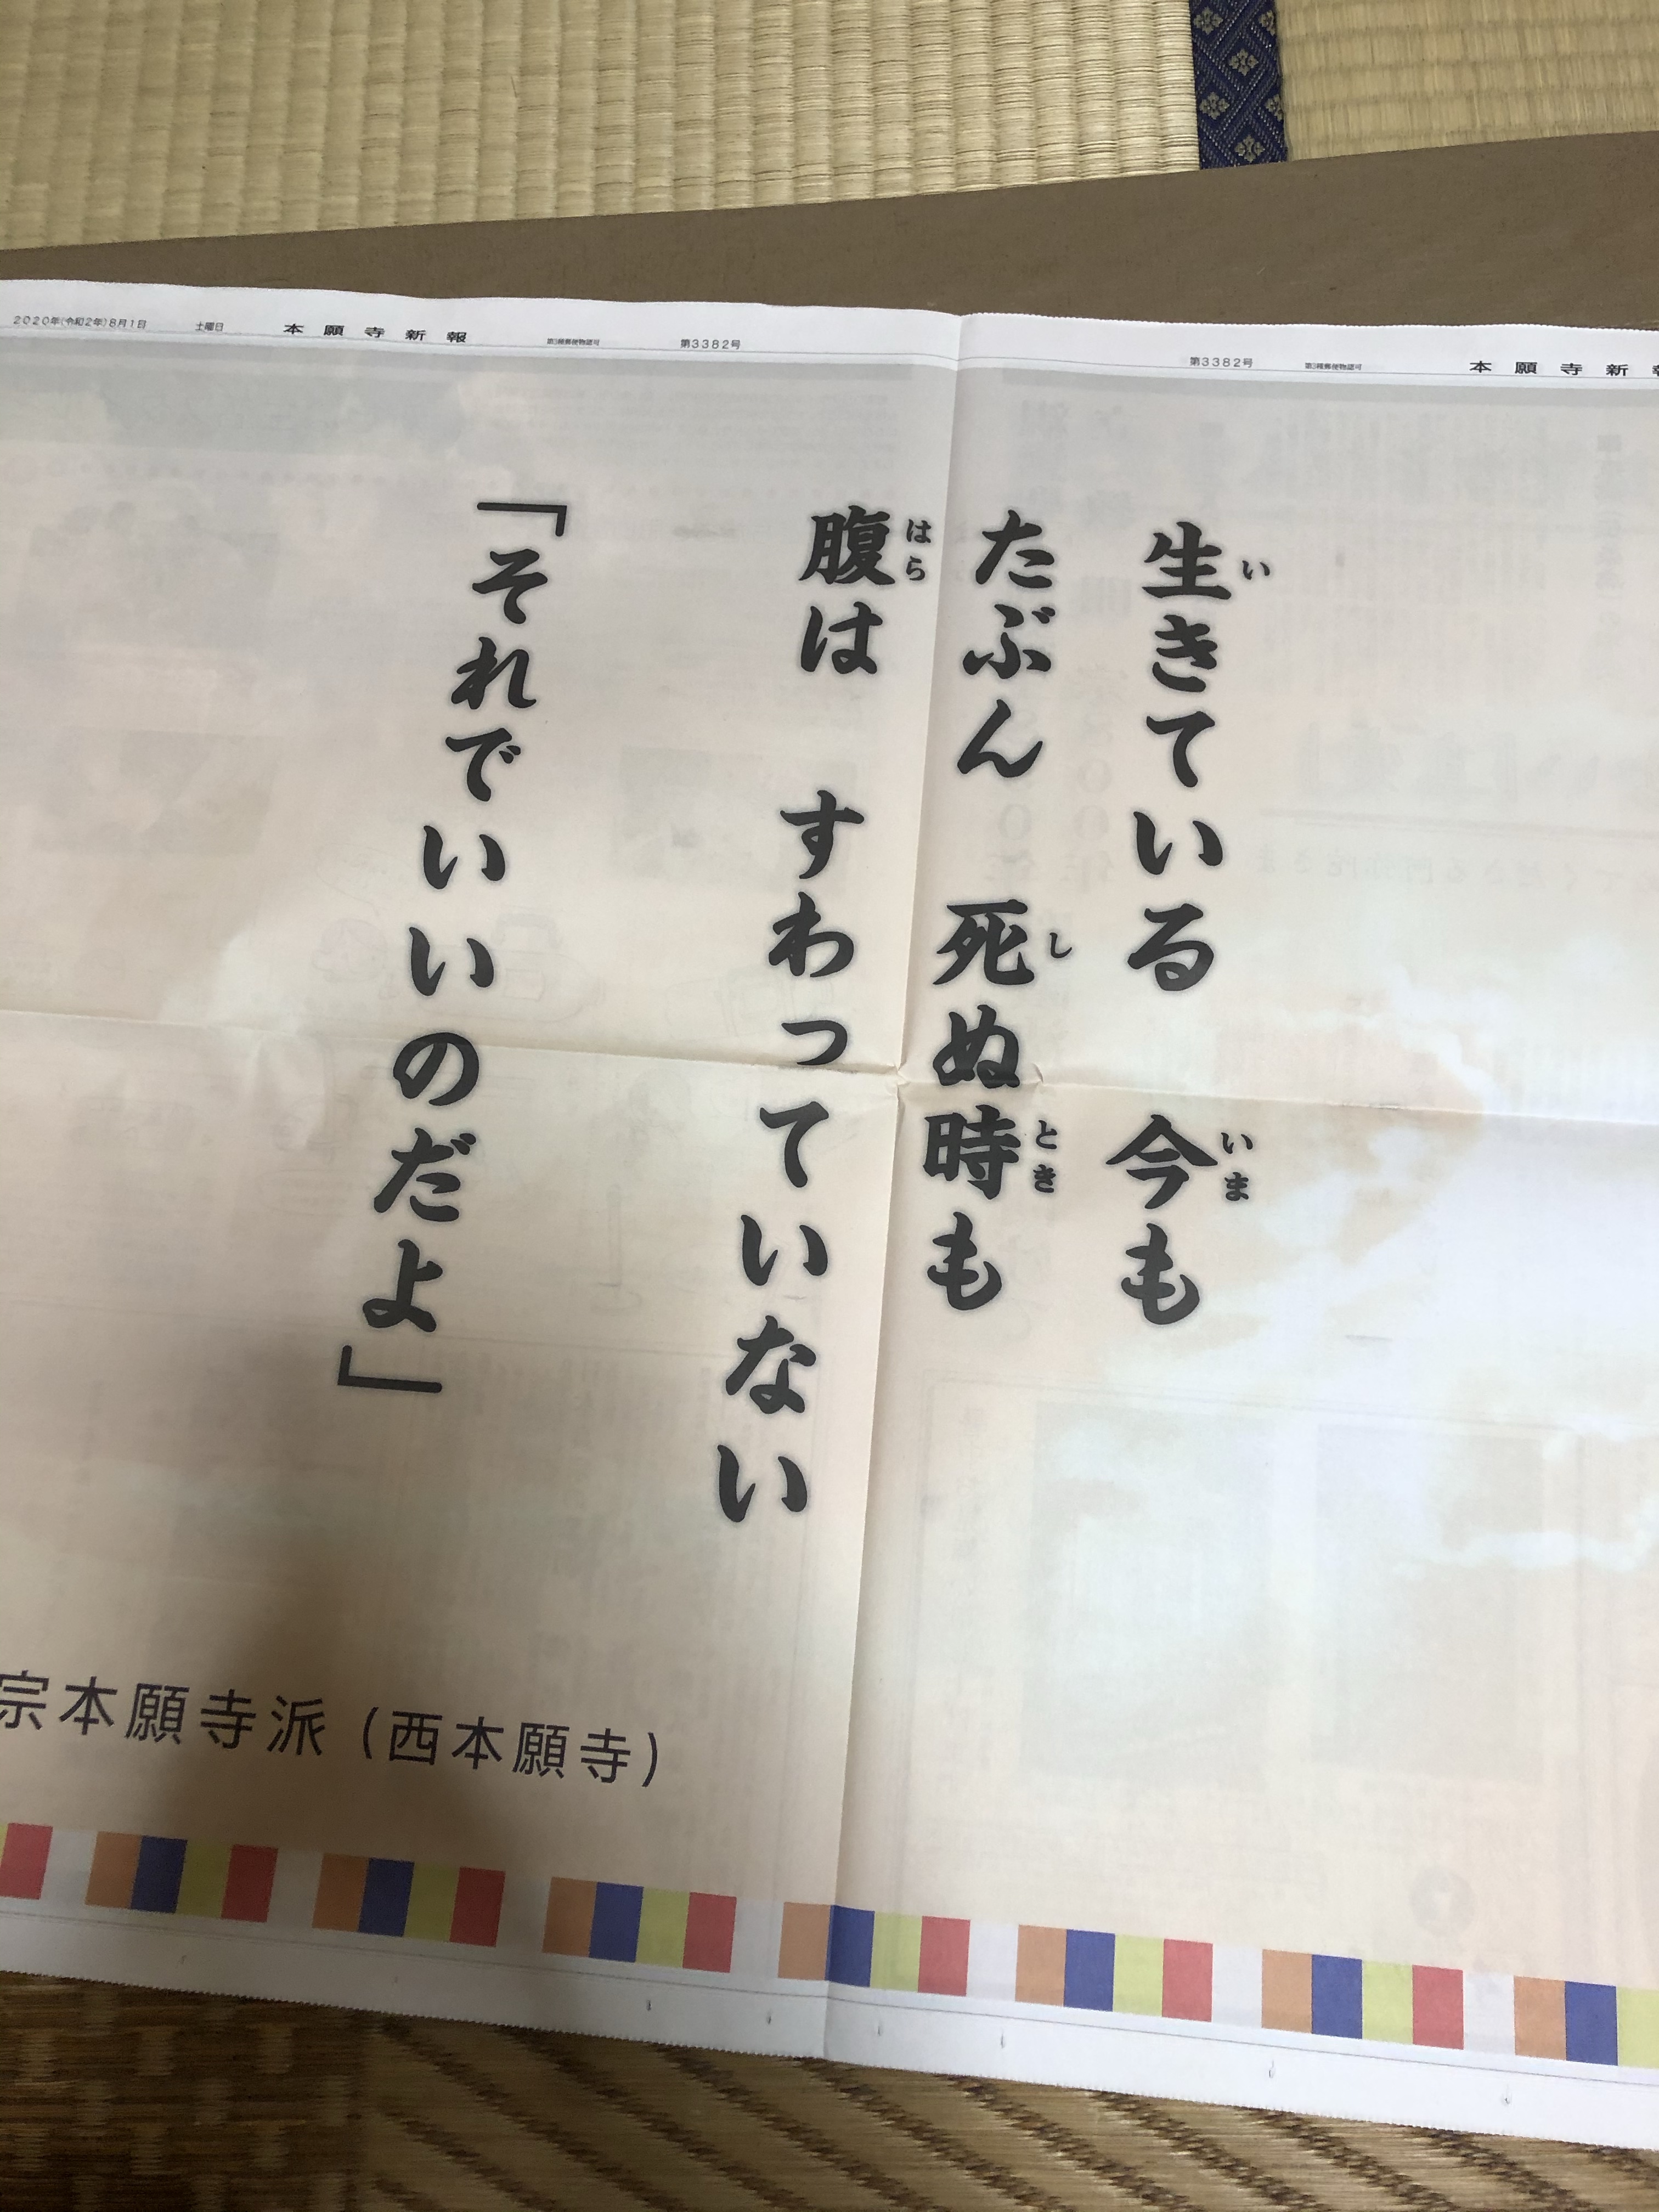 2020年(令和2年)8月1日 土曜日 本願寺新報 第3種郵便物認可 第3382号
第3382号 第3種郵便物認可 本願寺新
生きている 今も
たぶん 死ぬ時も
腹は すわっていない
「それでいいのだよ」
宗本願寺派（西本願寺）